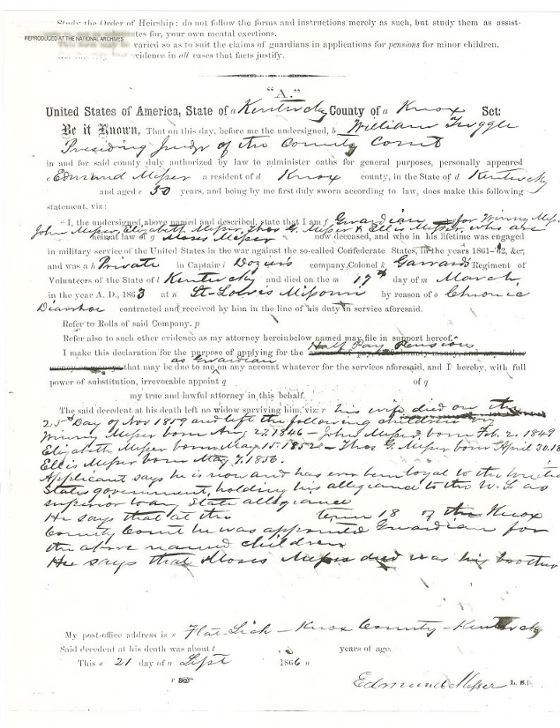 Study the Order of Heirship: do not follow the forms and instructions merely as such, but study them as assist-
for your own mental exertions.
REPRODUCED AT THE NATIONAL ARCHIVES
varied so as to suit the claims of guardians in applications for pensions for minor children.
evidence in all cases that facts justify.
"A."
United States of America, State of a Kentucky County of a Knox Set:
Be it Known, That on this day, before me the undersigned, b William Tuggle
Presiding Judge of the County Court
in and for said county duly authorized by law to administer oaths for general purposes, personally appeared
Edmund Messer a resident of d Knox county, in the State of d Kentucky
and aged e 50 years, and being by me first duly sworn according to law, does make this following
statement, viz:
"I, the undersigned above named and described, state that I am f Guardian for Winny Messer
John Messer, Elizabeth Messer, Thos G. Messer & Ellis Messer, who are
heirs at law of g Moses Messer now deceased, and who in his lifetime was engaged
in military service of the United States in the war against the so-called Confederate States, in the years 1861-'62, &c,
and was a h Private in Captain i Dozier's company, Colonel k Garrard's Regiment of
Volunteers of the State of l Kentucky and died on the m 19th day of m March
in the year A. D., 1863 at n St. Louis Missouri by reason of o Chronic
Diarrhoe contracted and received by him in the line of his duty in service aforesaid.
Refer to Rolls of said Company. p
Refer also to such other evidence as my attorney hereinbelow named may file in support hereof.
I make this declaration for the purpose of applying for the Half Pay Pension
as Guardian
that may be due to me on any account whatever for the services aforesaid, and I hereby, with full
power of substitution, irrevocable appoint q of q
my true and lawful attorney in this behalf.
The said decedent at his death left no widow surviving him, viz: r his wife died on the
25th Day of Nov 1859 and left the following children
Winny Messer born 1846 - John Messer born Feb. 2. 1849
Elizabeth Messer born Mar 15. 1852 - Thos G. Messer born April 30. 18
Ellis Messer born May 7, 1856.
Applicant says he is now and has ever been loyal to the United
States government, holding his allegiance to the U.S. as
superior to any State allegiance
He says that at the term 18 of the Knox
County Court he was appointed Guardian for
the above named children
He says that Moses Messer died was his brother
My post-office address is s Flat Lick - Knox County - Kentucky
Said decedent at his death was about t years of age.
This u 21 day of u Sept 1866 u
Edmund Messer L. S.